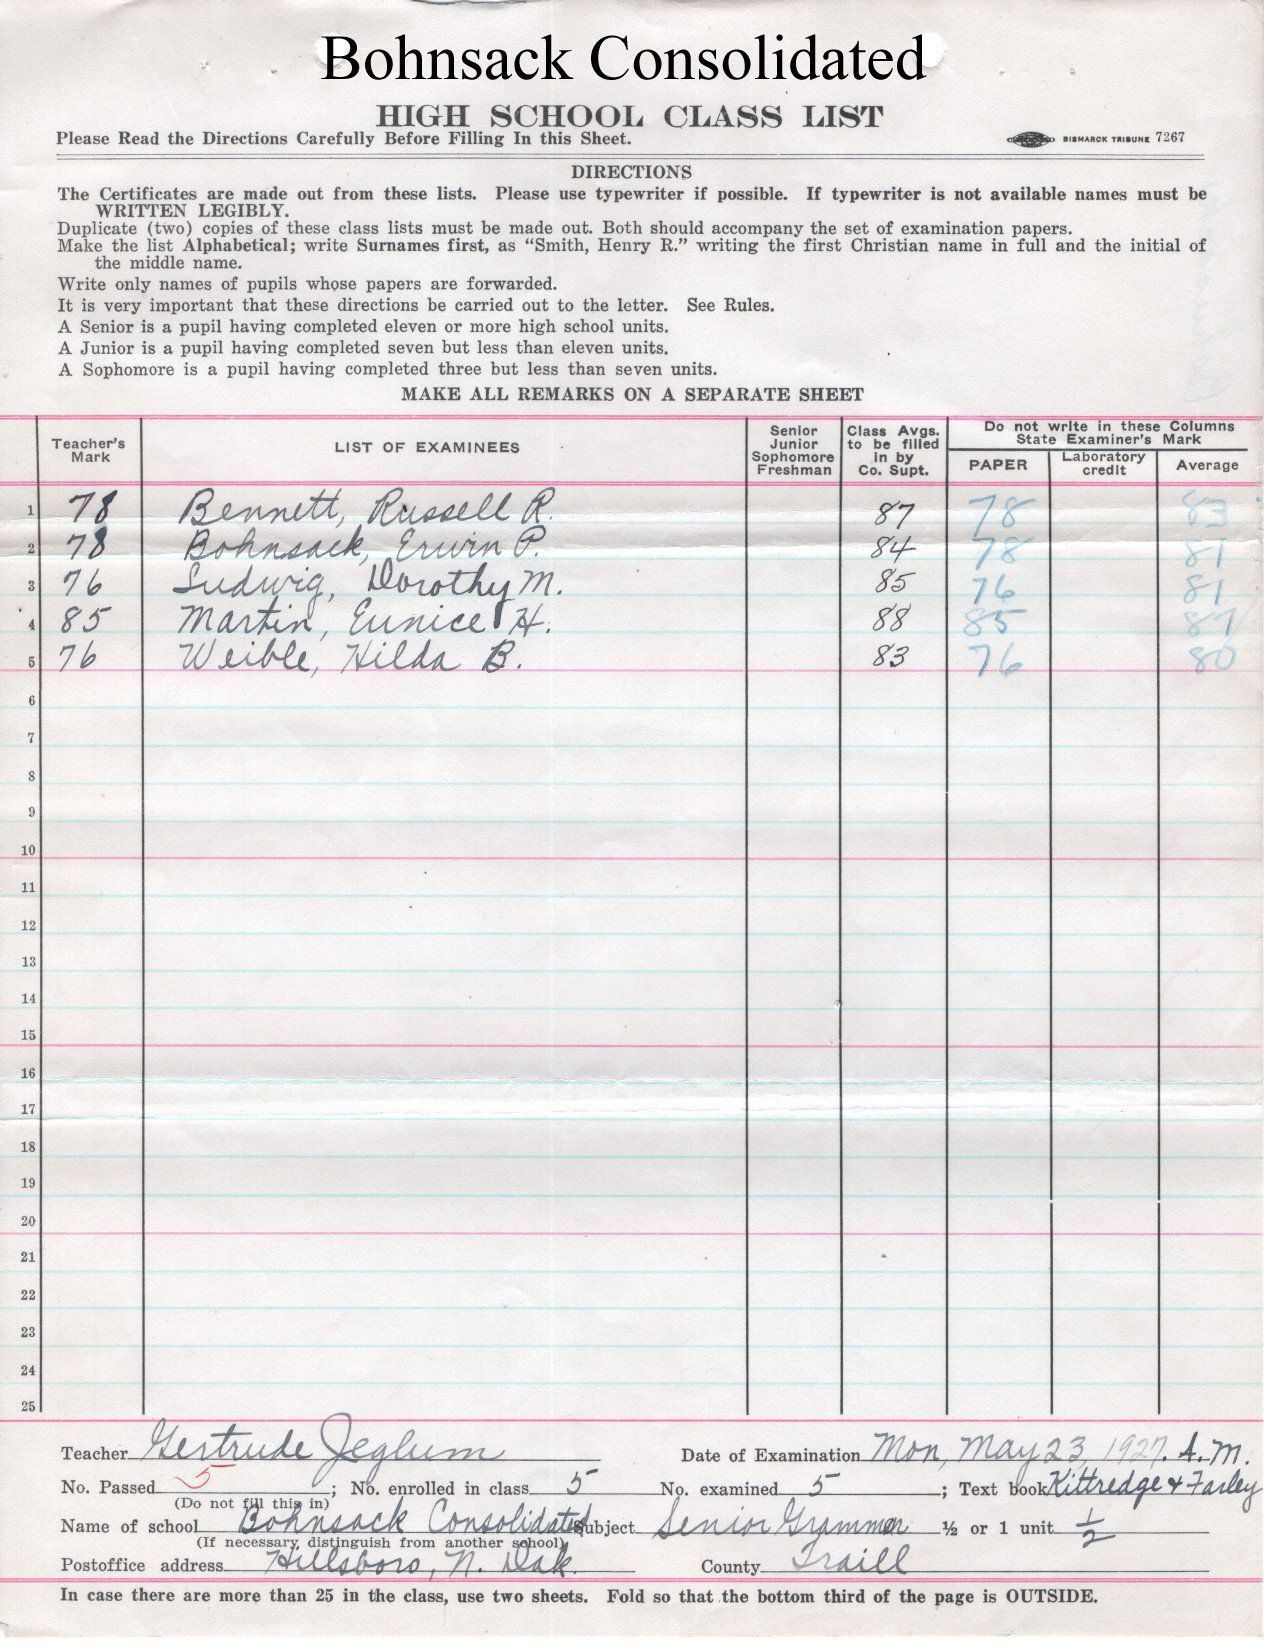 Bohnsack Consolidated
HIGH SCHOOL CLASS LIST
Please Read the Directions Carefully Before Filling In this Sheet. BISMARCK TRIBUNE 7267
DIRECTIONS
The Certificates are made out from these lists. Please use typewriter if possible. If typewriter is not available names must be
WRITTEN LEGIBLY.
Duplicate (two) copies of these class lists must be made out. Both should accompany the set of examination papers.
Make the list Alphabetical; write Surnames first, as "Smith, Henry R." writing the first Christian name in full and the initial of
the middle name.
Write only names of pupils whose papers are forwarded.
It is very important that these directions be carried out to the letter. See Rules.
A Senior is a pupil having completed eleven or more high school units.
A Junior is a pupil having completed seven but less than eleven units.
A Sophomore is a pupil having completed three but less than seven units.
MAKE ALL REMARKS ON A SEPARATE SHEET
Teacher's Mark
LIST OF EXAMINEES
Senior Junior Sophomore Freshman
Class Avgs. to be filled in by Co. Supt.
Do not write in these Columns
State Examiner's Mark
PAPER Laboratory credit Average
1 78 Bennett, Russell R. 87 78 83
2 78 Bohnsack, Erwin P. 84 78 81
3 76 Ludwig, Dorothy M. 85 76 81
4 85 Martin, Eunice H. 88 85 87
5 76 Weible, Hilda B. 83 76 80
6
7
8
9
10
11
12
13
14
15
16
17
18
19
20
21
22
23
24
25
Teacher Gertrude Jeglum Date of Examination Mon, May 23, 1927. A.M.
No. Passed 5; No. enrolled in class 5 No. examined 5; Text book Kittredge & Farley
(Do not fill this in)
Name of school Bohnsack Consolidated Subject Senior Grammar ½ or 1 unit ½
(If necessary, distinguish from another school)
Postoffice address Hillsboro, N. Dak. County Traill
In case there are more than 25 in the class, use two sheets. Fold so that the bottom third of the page is OUTSIDE.